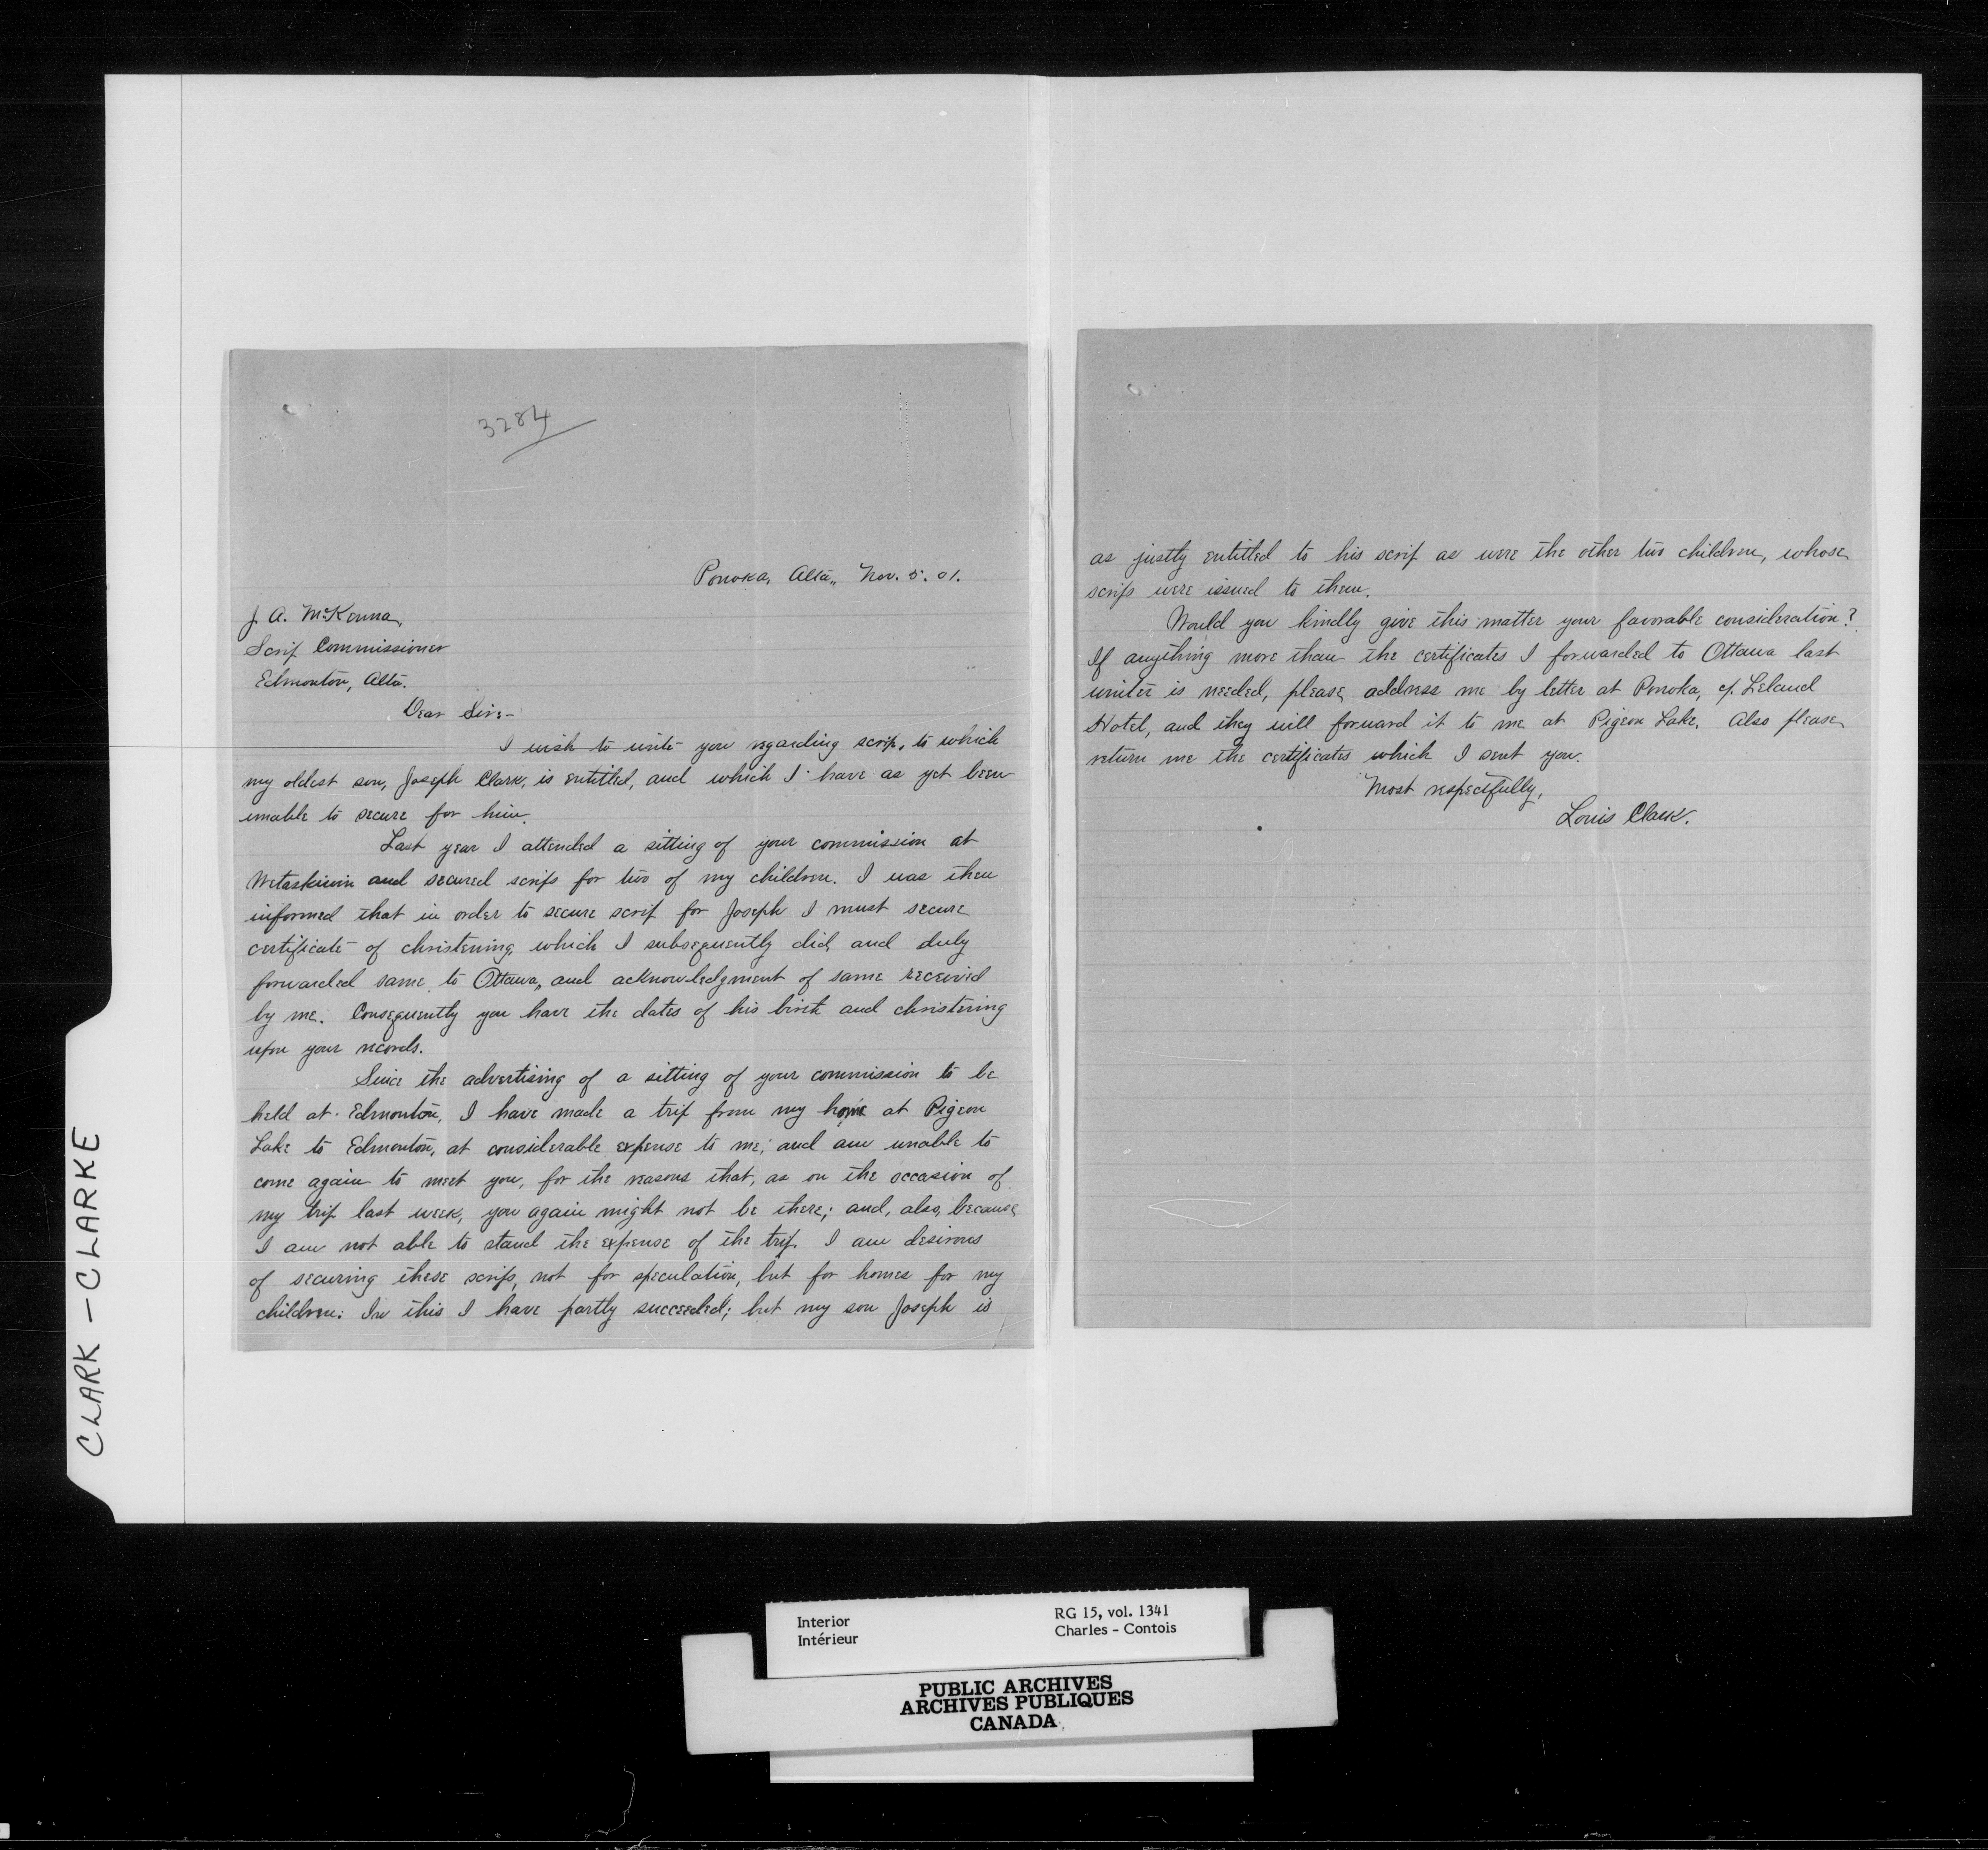 3284
Ponoka, Alta., Nov. 5. 01.
J. A. McKenna,
Scrip Commissioner
Edmonton, Alta.
Dear Sir:-
I wish to write you regarding scrip, to which
my oldest son, Joseph Clark, is entitled, and which I have as yet been
unable to secure for him.
Last year I attended a sitting of your commission at
Wetaskiwin and secured scrips for two of my children. I was then
informed that in order to secure scrip for Joseph I must secure
certificate of christening, which I subsequently did, and duly
forwarded same to Ottawa, and acknowledgment of same received
by me. Consequently you have the dates of his birth and christening
upon your records.
Since the advertising of a sitting of your commission to be
held at Edmonton, I have made a trip from my home at Pigeon
Lake to Edmonton, at considerable expense to me; and am unable to
come again to meet you, for the reasons that, as on the occasion of
my trip last week, you again might not be there; and, also, because
I am not able to stand the expense of the trip. I am desirous
of securing these scrips, not for speculation, but for homes for my
children. In this I have partly succeeded; but my son Joseph is
as justly entitled to his scrip as were the other two children, whose
scrips were issued to them.
Would you kindly give this matter your favorable consideration?
If anything more than the certificates I forwarded to Ottawa last
winter is needed, please address me by letter at Ponoka, c/. Leland
Hotel, and they will forward it to me at Pigeon Lake. Also please
return me the certificates which I sent you.
Most respectfully,
Louis Clark.
CLARK - CLARKE
Interior
Intérieur
RG 15, vol. 1341
Charles - Contois
PUBLIC ARCHIVES
ARCHIVES PUBLIQUES
CANADA